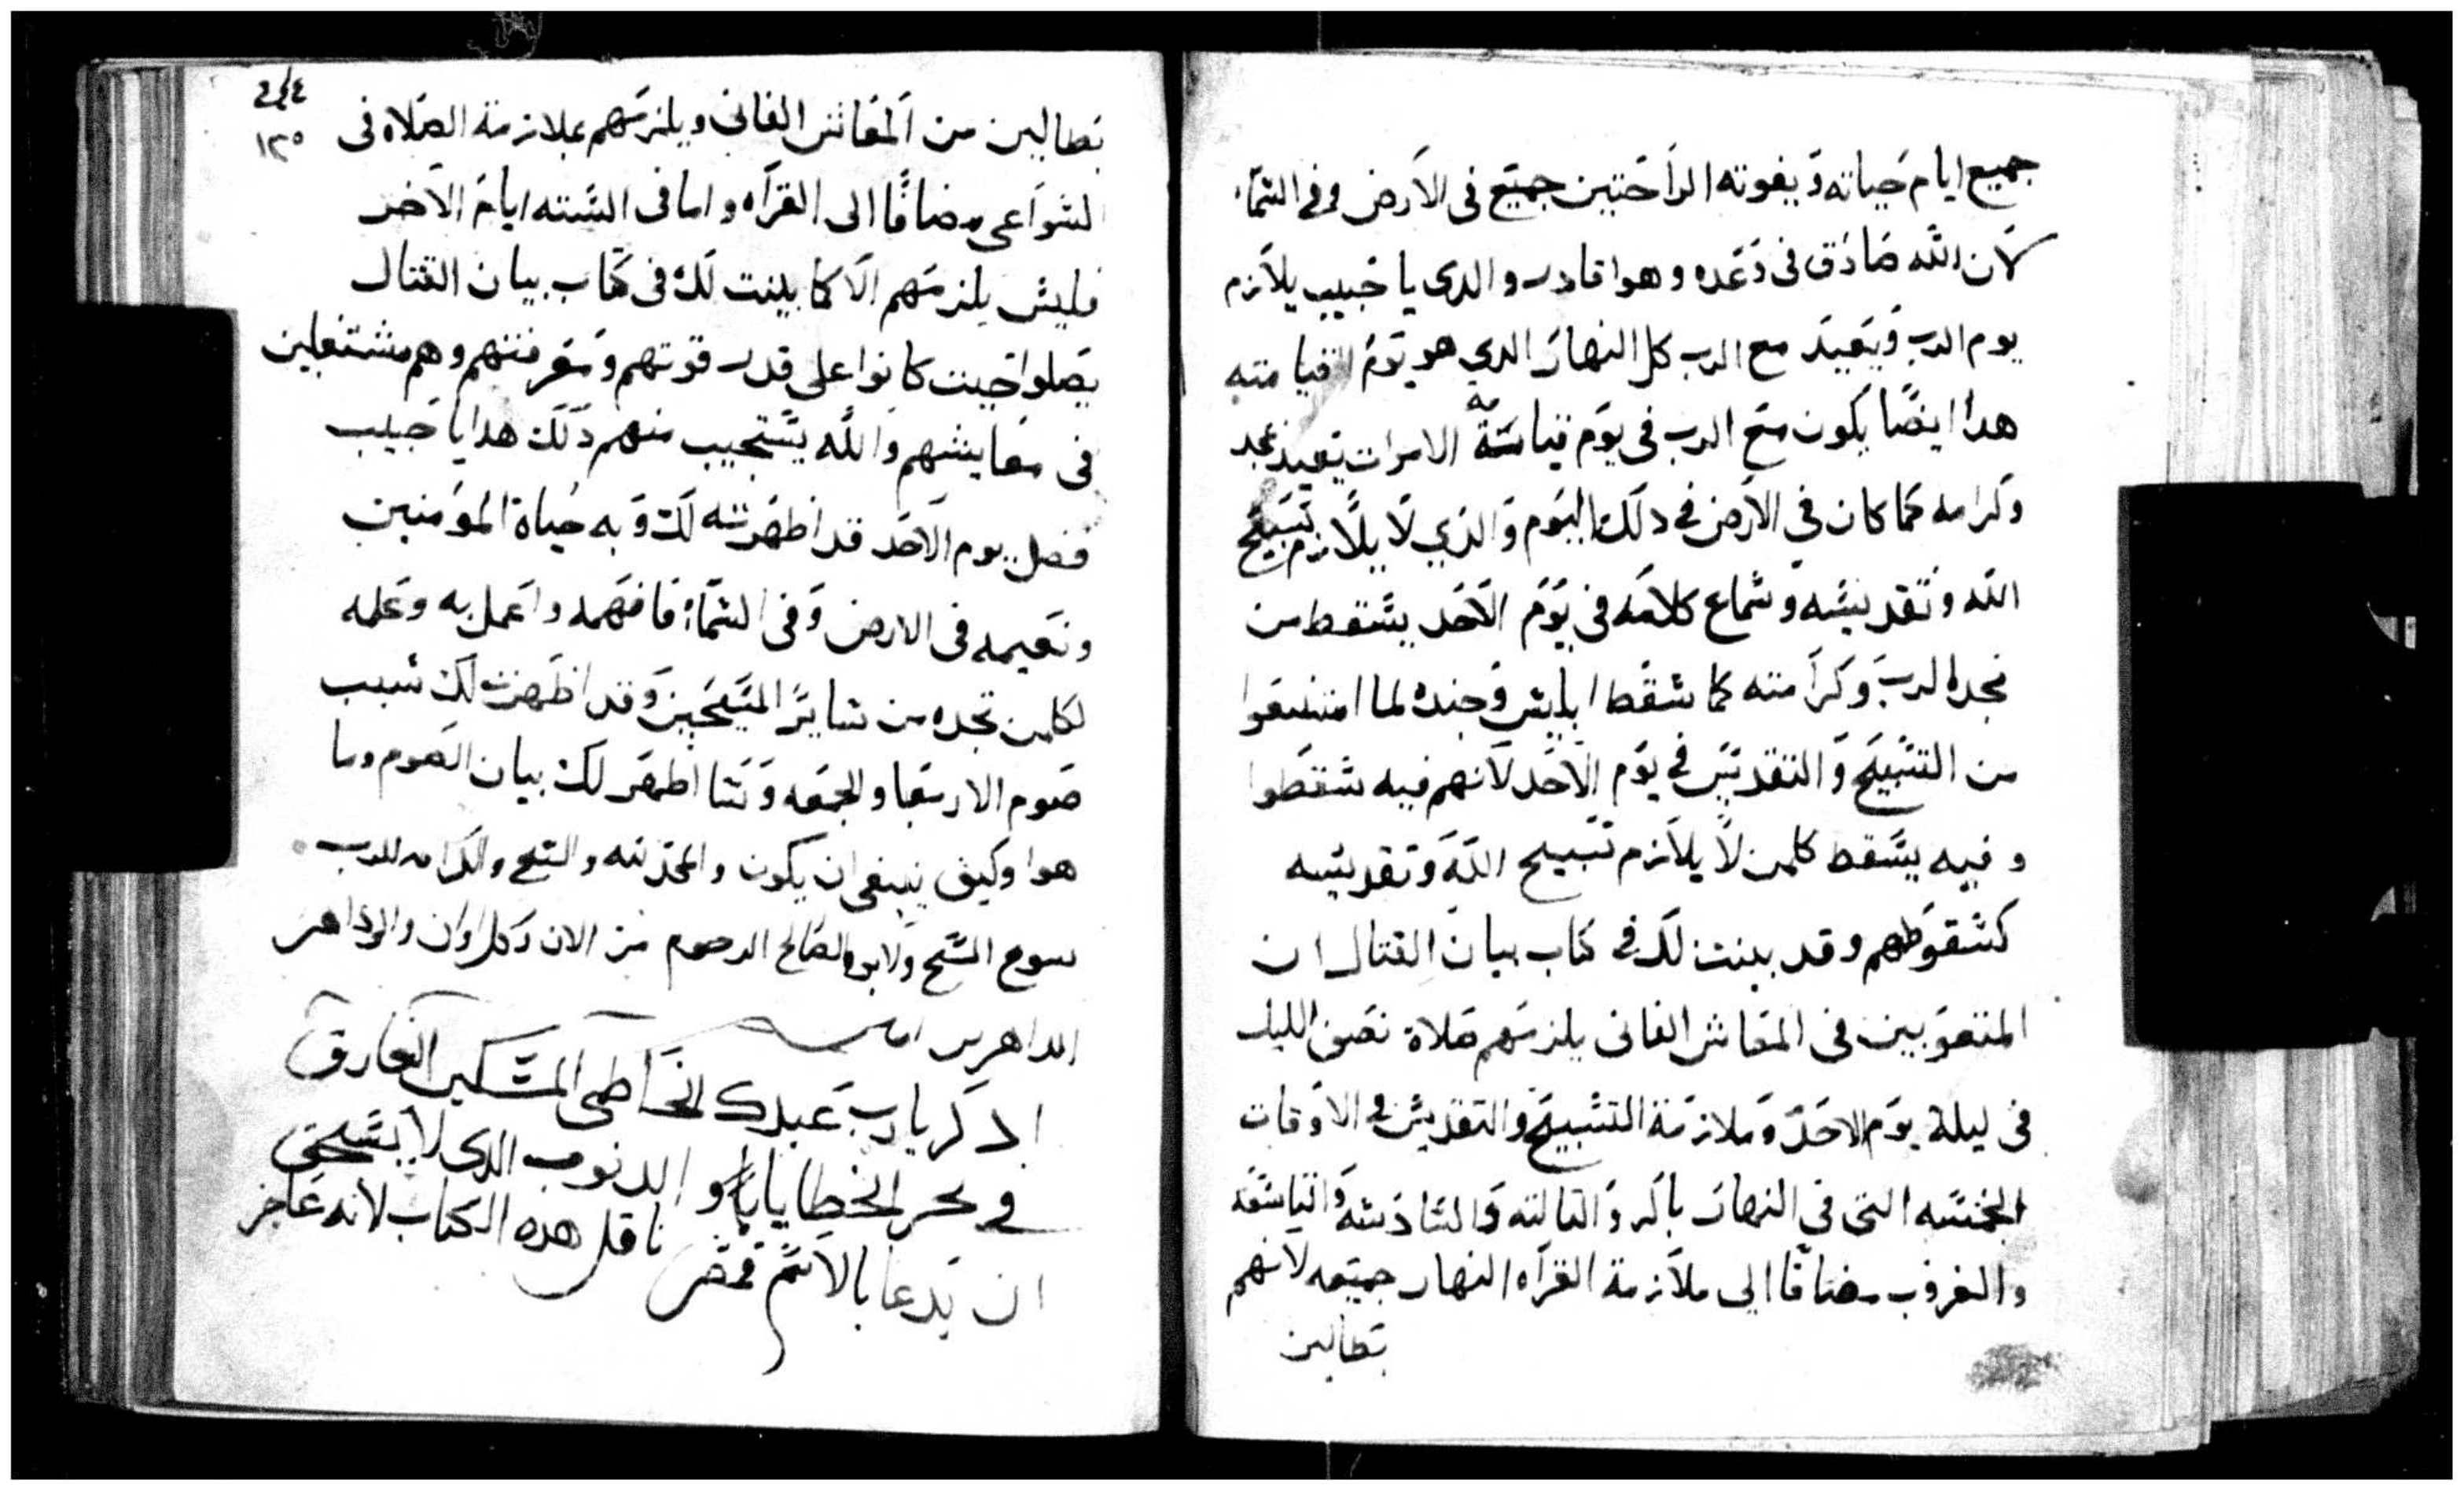 جميع ايام حياته ويفوته الراحتين جميع في الارض وفي السما
لان الله صادق في وعده وهوا قادر والدي يا حبيب يلازم
يوم الرب ويعيد مع الرب كل النهار الدي هو يوم قيامته
هدا ايضا يكون مع الرب في يوم قيامة الاموات يعيد بمجد
وكرامه كما كان في الارض في دلك اليوم والذي لا يلازم تسبيح
الله وتقديسه وسماع كلامه في يوم الاحد يسقط من
مجد الرب وكرامته كما سقط ابليس وجنده لما امتنعوا
من التسبيح والتقديس في يوم الاحد لانهم فيه سقطوا
وفيه يسقط كلمن لا يلازم تسبيح الله وتقديسه
كسقوطهم وقد بينت لك في كتاب بيان القتال ان
المتعوبين في المعاش الفاني يلزمهم صلاة نصف الليل
في ليلة يوم الاحد وملازمة التسبيح والتقديس في الاوقات
الخمسه التي في النهار باكر والتالته والسادسه والتاسعه
والغروب مضافا الي ملازمة القراه النهار جميعه لانهم
بطالين
٢٤٤
١٢٥
بطالين من المعاش الفاني ويلزمهم بملازمة الصلاه في
السواعي مضافا الى القراه واما في السته ايام الاخر
فليس يلزمهم الا كما بينت لك في كتاب بيان القتال
يصلوا حيت كانوا على قدر قوتهم ومعرفتهم وهم مشتغلين
في معايشهم والله يستجيب منهم دلك هدا يا حبيب
فضل يوم الاحد قد اظهرته لك وبه حياة المومنين
ونعيمه في الارض وفي السماء فافهمه واعمل به وعلمه
لكلمن تجده من ساير المسيحيين وقد اظهرت لك سبب
صوم الاربعا والجمعه وسا اظهر لك بيان الصوم وما
هوا وكيف ينبغي ان يكون والمجد لله والتسبيح والكرامه للرب
يسوع المسيح ولابوه الصالح الروح من الان وكل اوان والي داهر
الداهرين امين
ادكر يارب عبدك الخاطي المسكين الغارق
في بحر الخطايا والدنوب الدي لا يستحق
ان يدعا بالاسم ناقل هده الكتاب لانه عاجز